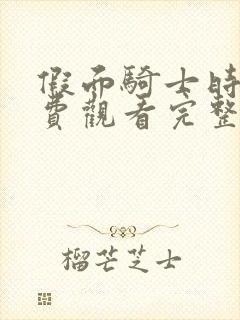 假面騎士時
費觀看完整
榴芒芝士